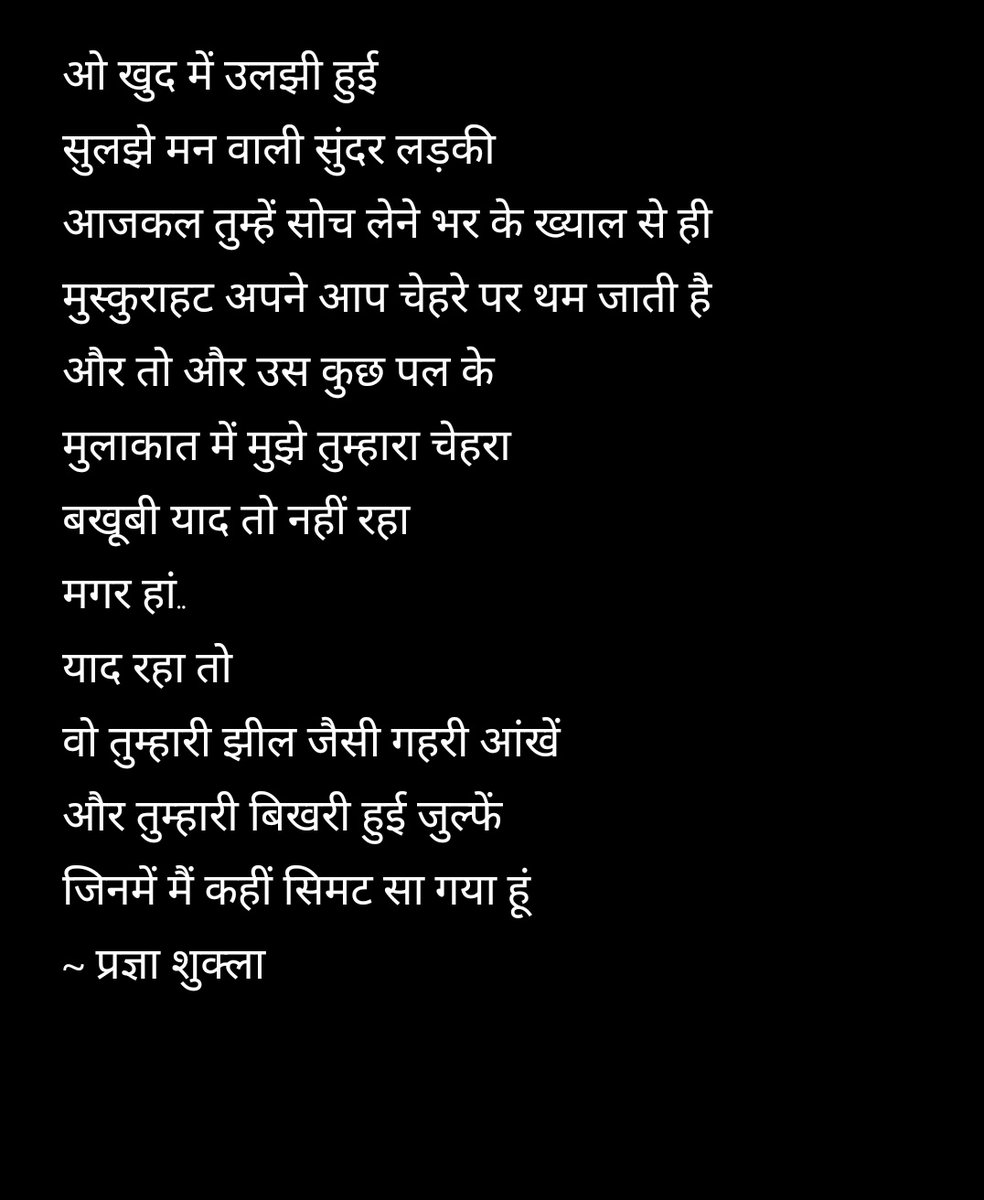 ओ खुद में उलझी हुई
सुलझे मन वाली सुंदर लड़की
आजकल तुम्हें सोच लेने भर के ख्याल से ही
मुस्कुराहट अपने आप चेहरे पर थम जाती है
और तो और उस कुछ पल के
मुलाकात में मुझे तुम्हारा चेहरा
बखूबी याद तो नहीं रहा
मगर हां..
याद रहा तो
वो तुम्हारी झील जैसी गहरी आंखें
और तुम्हारी बिखरी हुई जुल्फें
जिनमें मैं कहीं सिमट सा गया हूं
~ प्रज्ञा शुक्ला